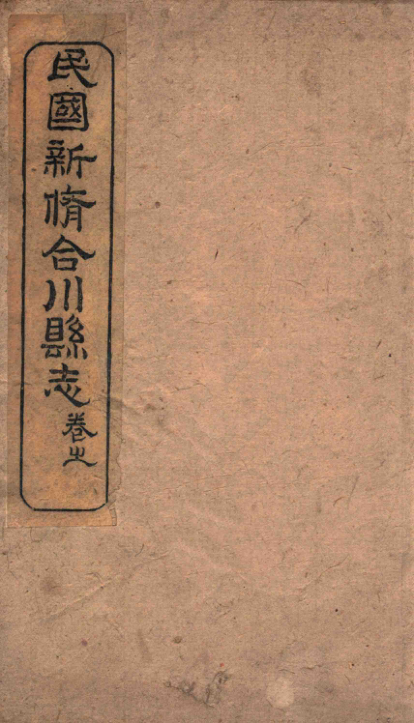 民國新脩合川縣志 卷